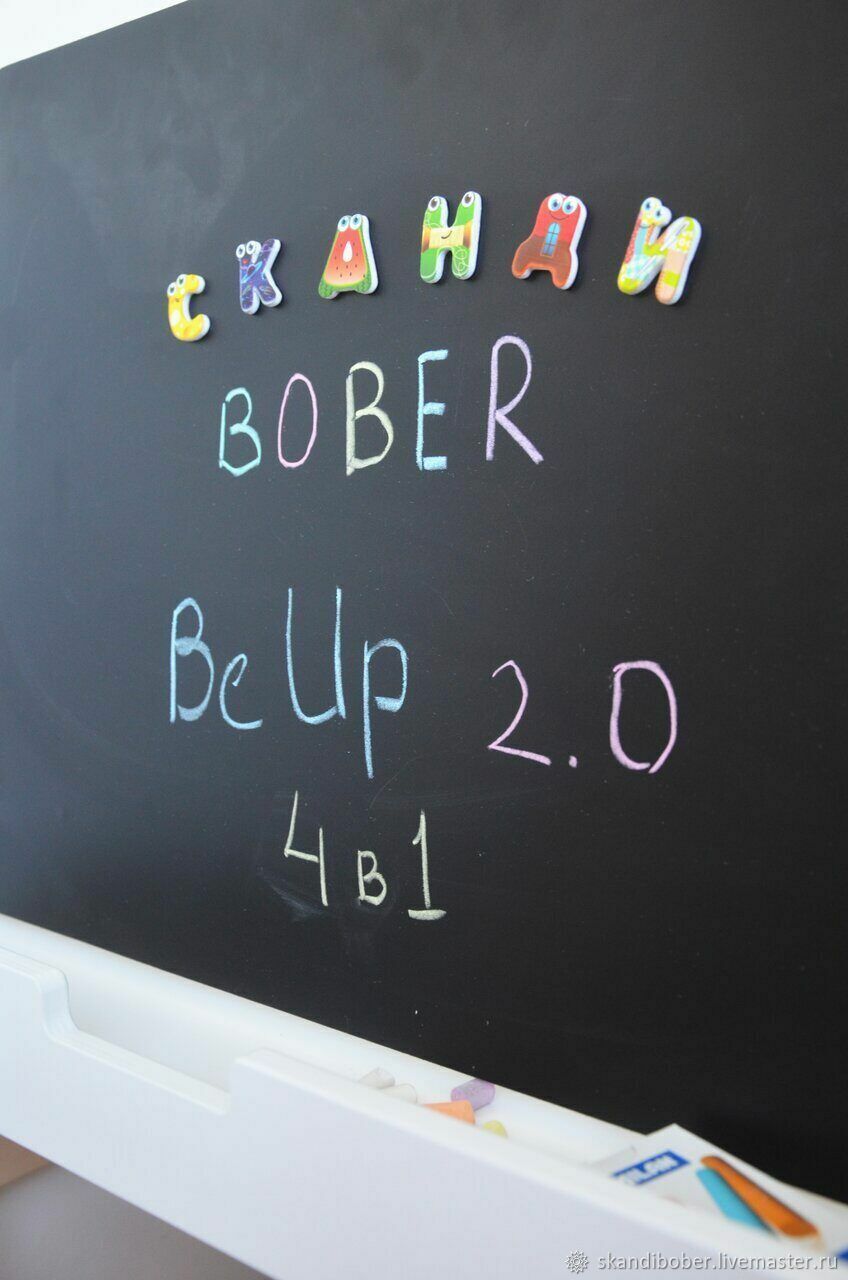 СКАНДИ
BOBER
BeUp 2.0
4 в 1
skandibober.livemaster.ru